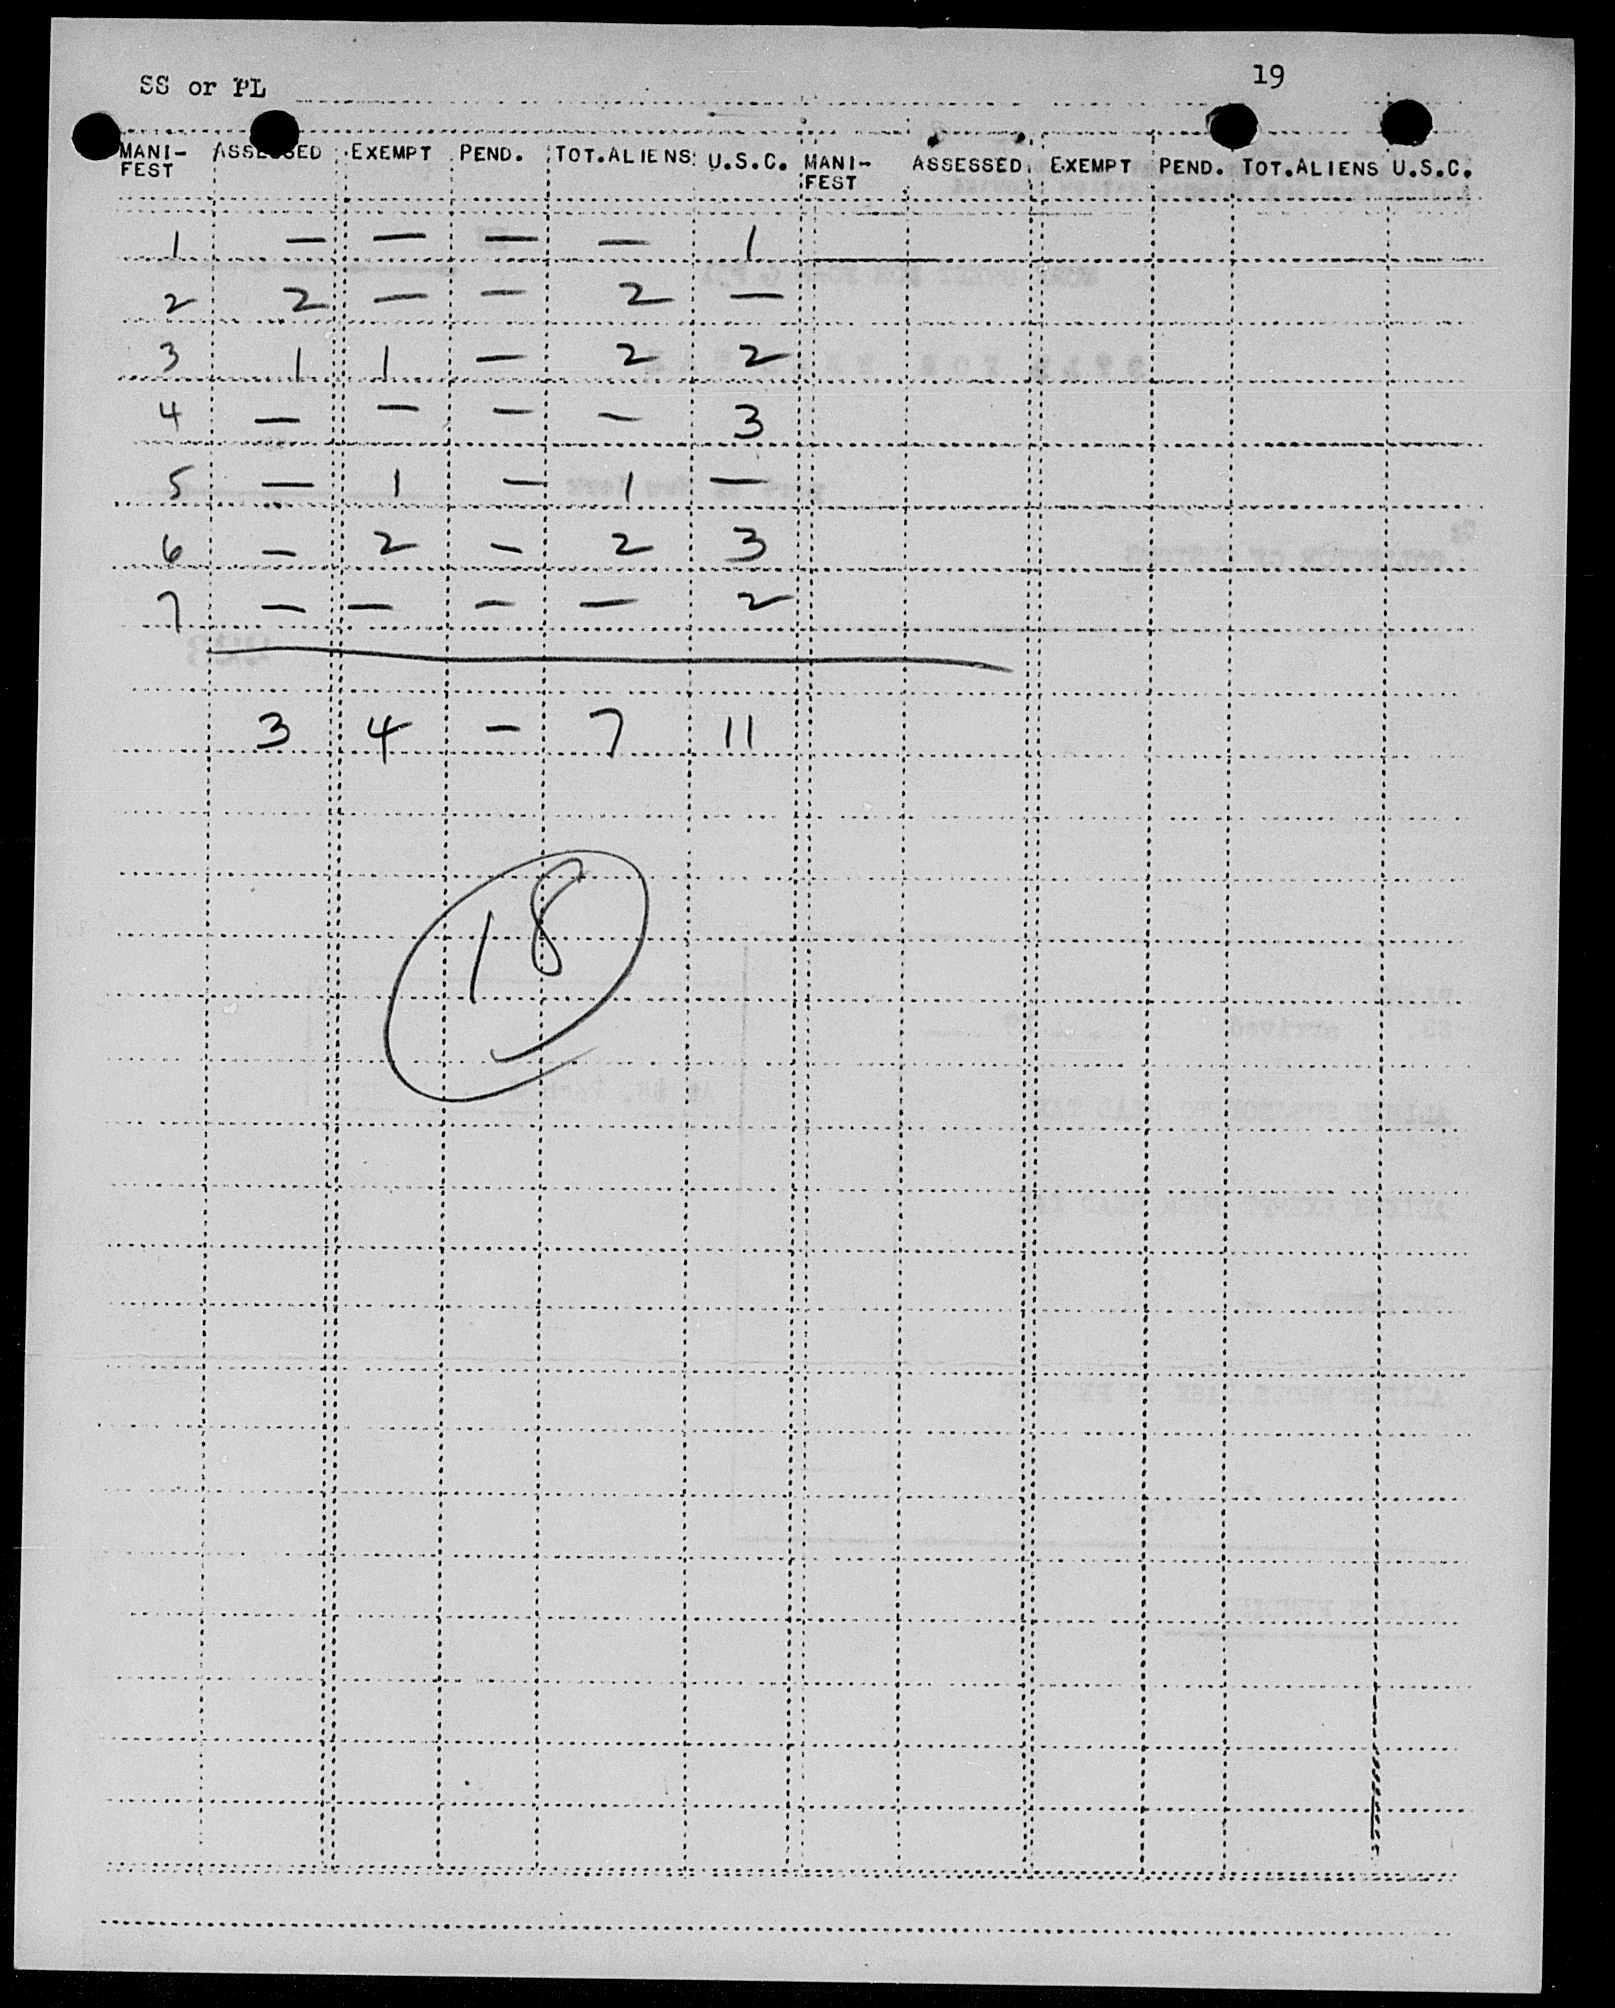 SS or PL 19
MANI-FEST ASSESSED EXEMPT PEND. TOT.ALIENS U.S.C. MANI-FEST ASSESSED EXEMPT PEND. TOT.ALIENS U.S.C.
1 — — — — 1
2 2 — — 2 —
3 1 1 — 2 2
4 — — — — 3
5 — 1 — 1 —
6 — 2 — 2 3
7 — — — — 2
3 4 — 7 11
18